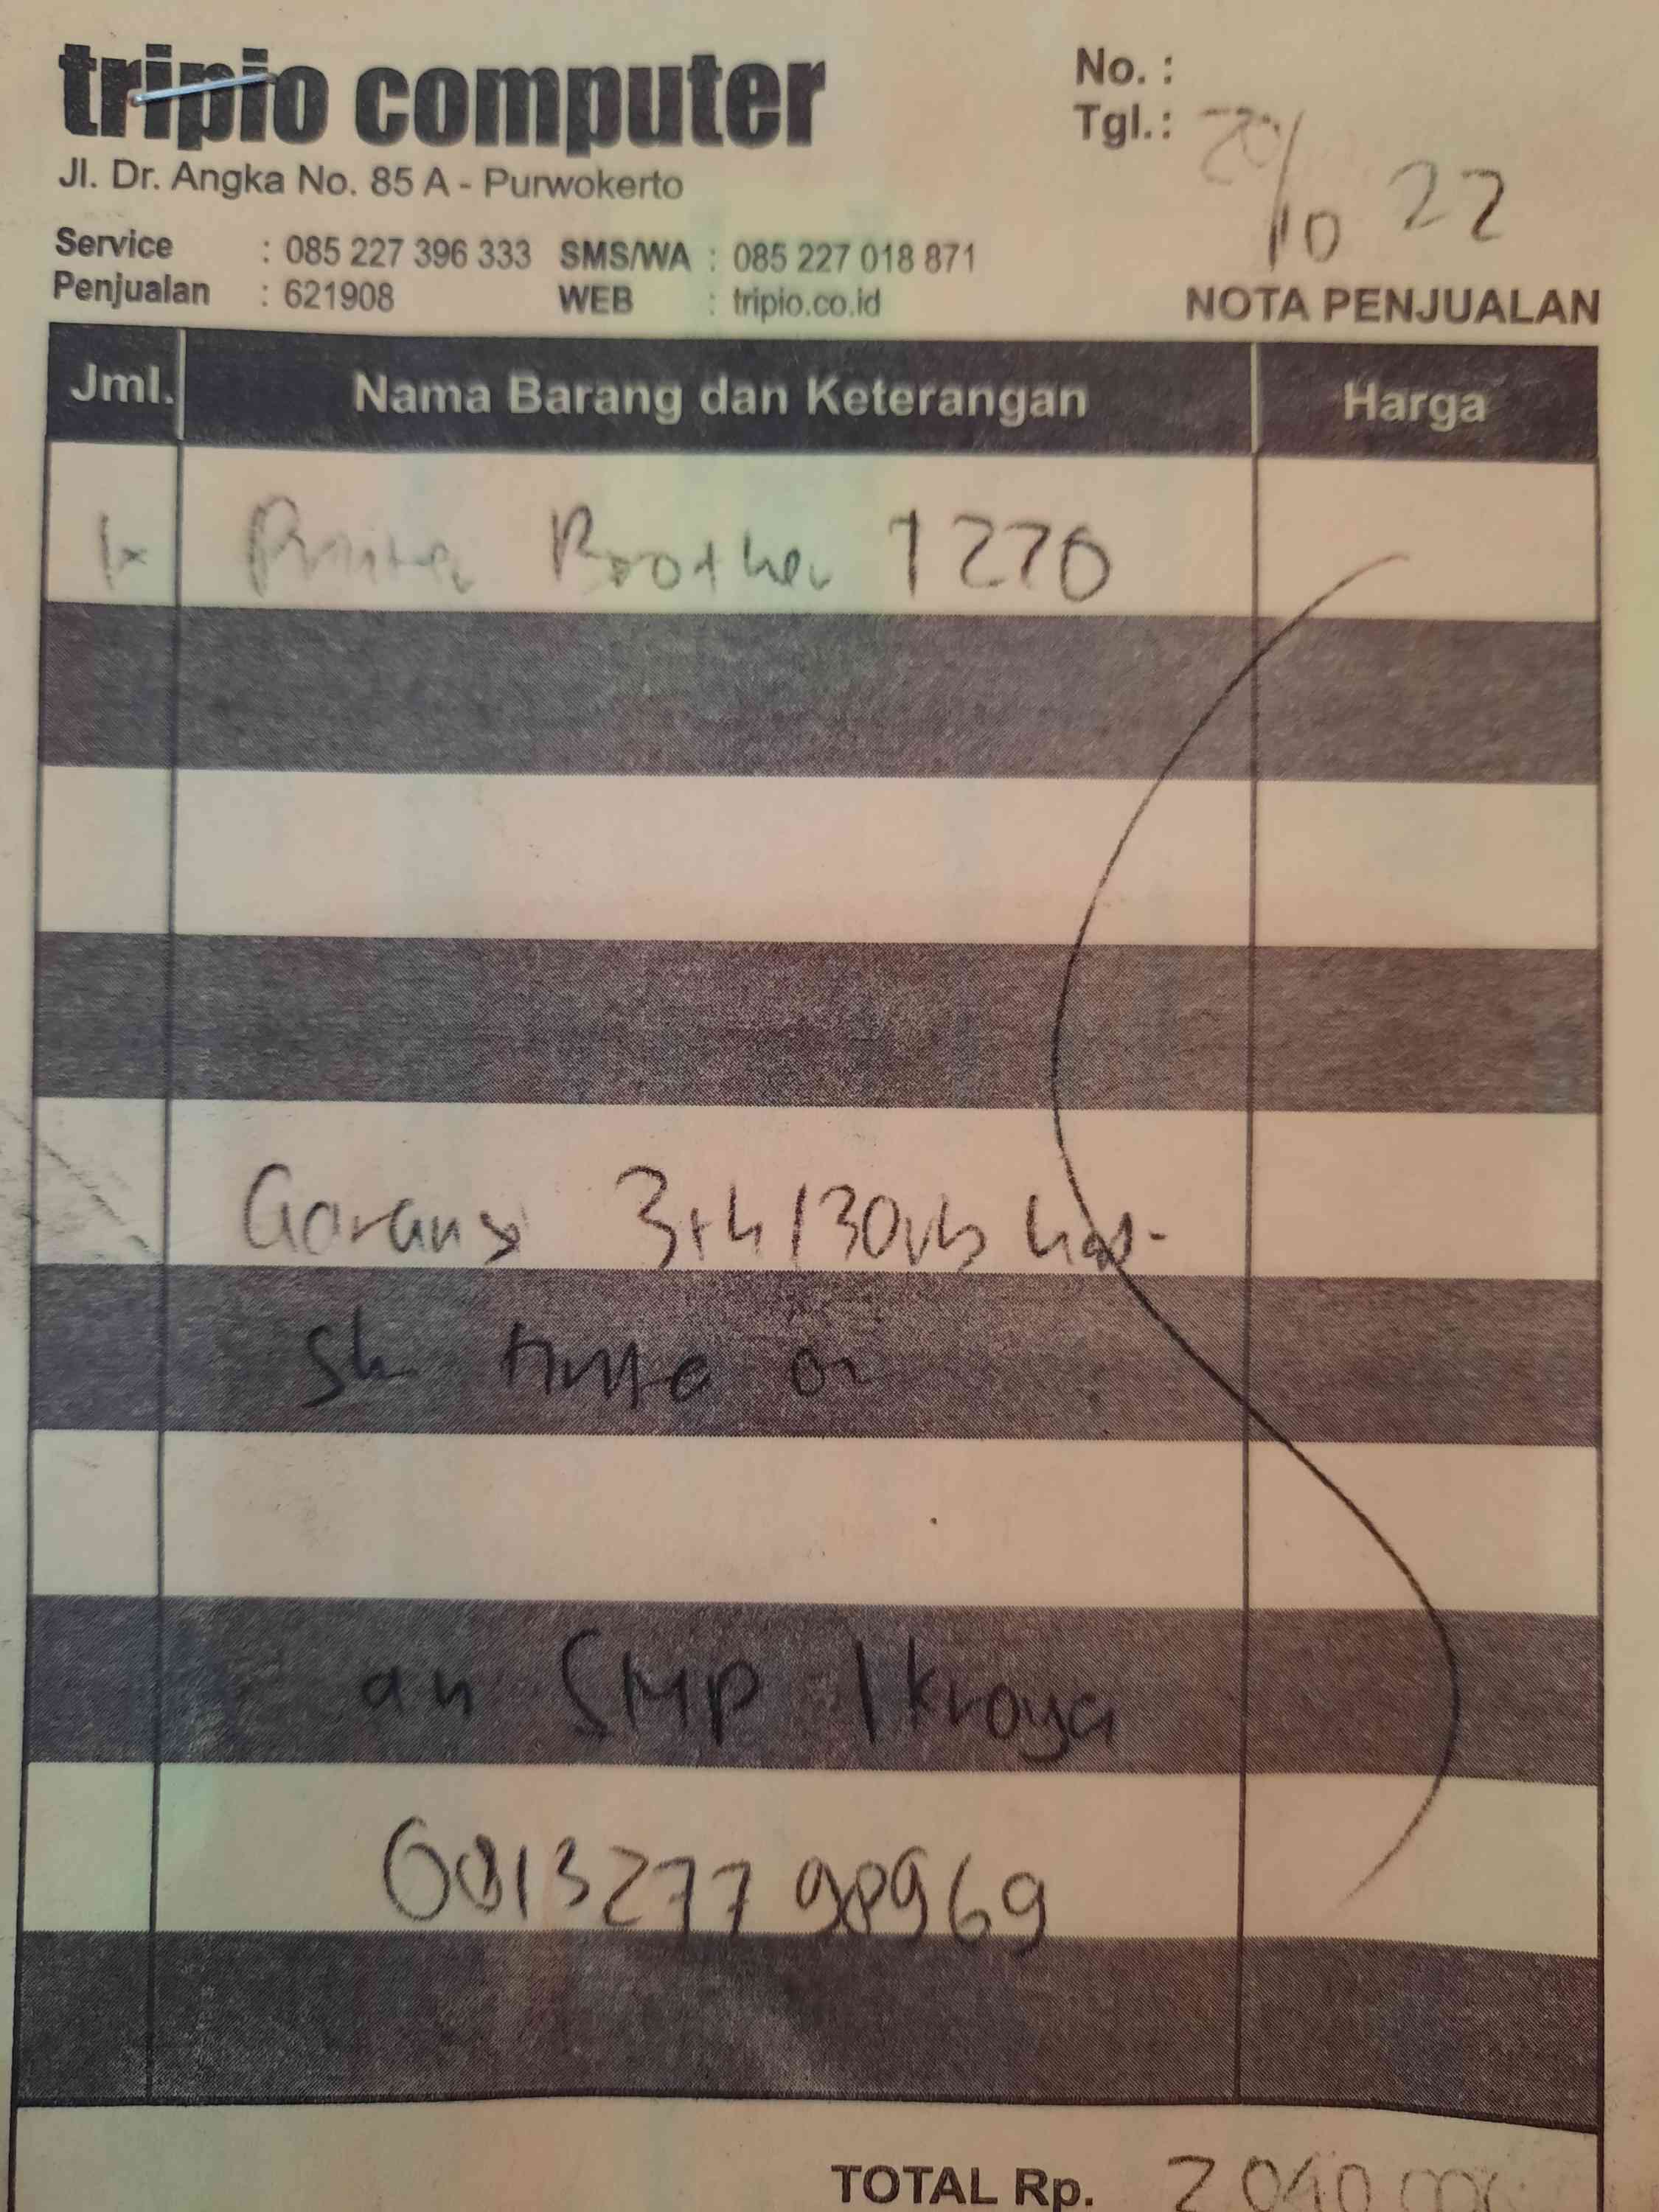 tripio computer
Jl. Dr. Angka No. 85 A - Purwokerto
Service : 085 227 396 333 SMS/WA : 085 227 018 871
Penjualan : 621908 WEB : tripio.co.id
No. :
Tgl.: 20/10 22
NOTA PENJUALAN
Jml. Nama Barang dan Keterangan Harga
1x Printer Broother 1270
Garansi 3th/30rb
tinta ori
an SMP 1 kroya
081327798969
TOTAL Rp. 2.040.000